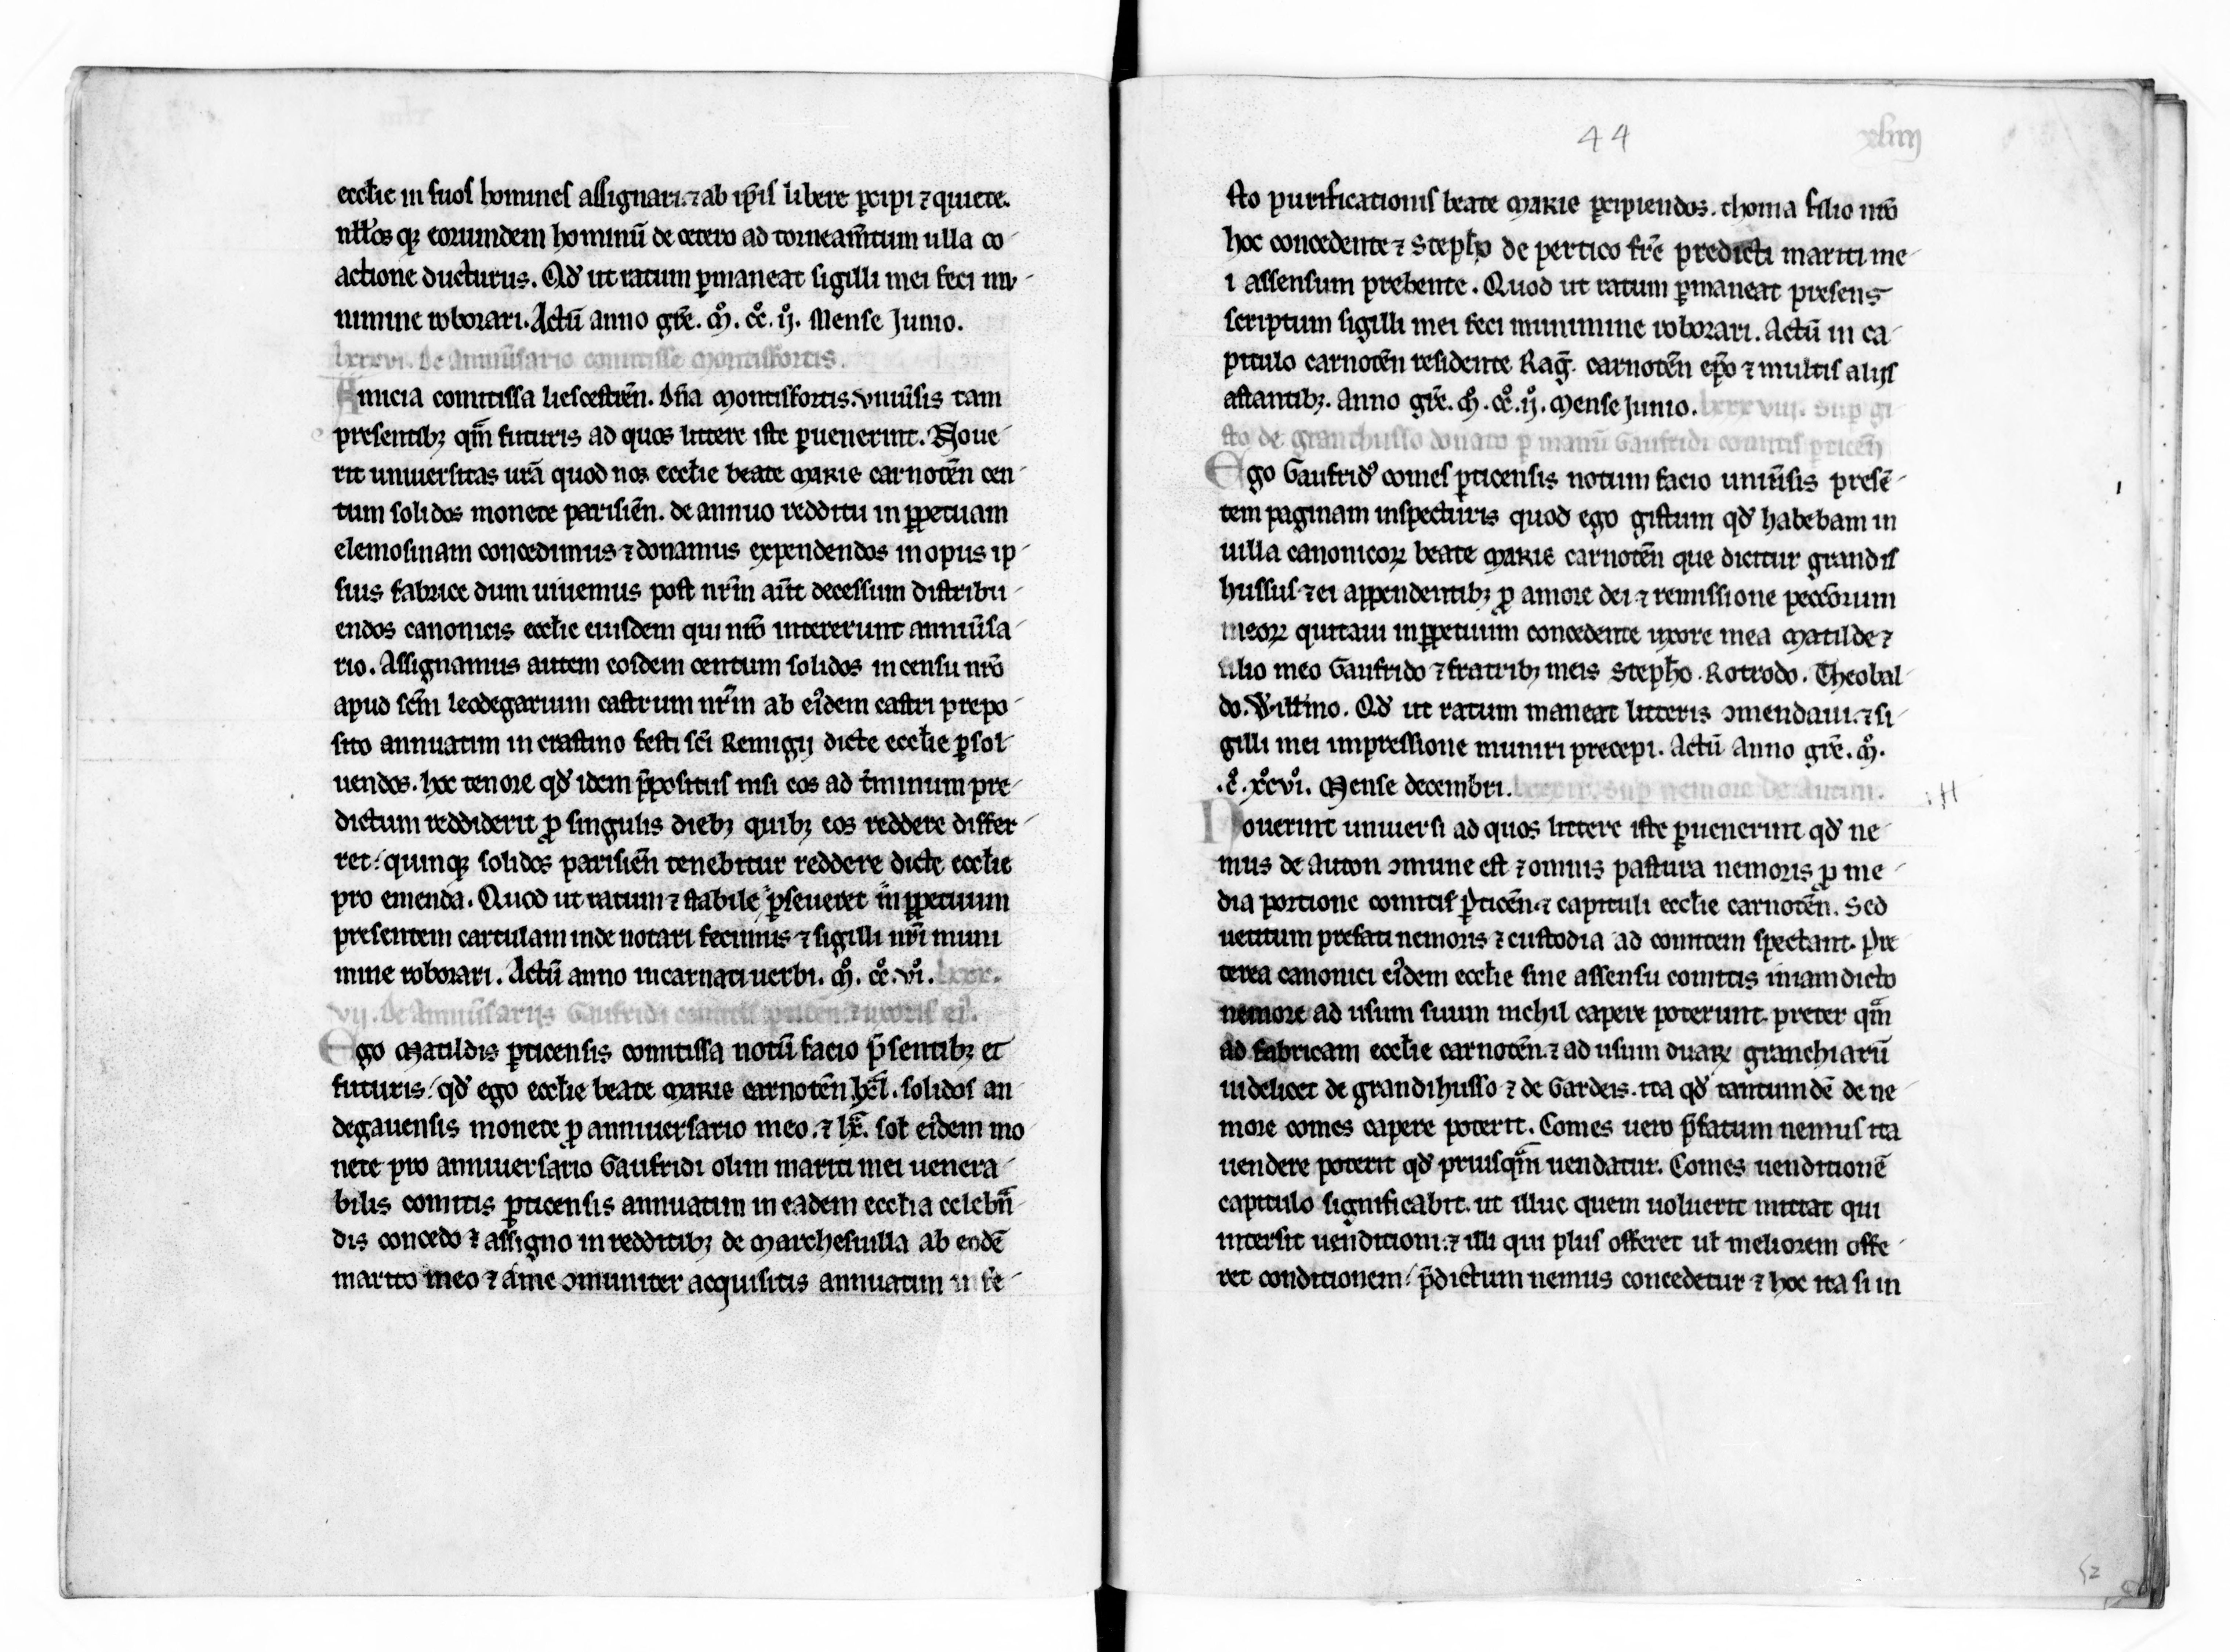 eccłie in suos homines assignari. ⁊ ab ip̄is libere ꝑcipi ⁊ quiete.
nłłos qꝫ eorumdem hominū de cetero ad torneam̄tum ulla co
actione ducturus. Qđ ut ratum ꝑmaneat sigilli mei feci mu
nimine roborari. Actū anno gr̄e. mͦ. ccͦ. ijͦ. Mense Junio.
lxxxvi. De Anniūsario comitisse Montisfortis.
Amicia comitissa liescestrēn. dn̄a Montisfortis. vniūsis tam
presentibꝫ qm̄ futuris ad quos littere iste ꝑuenerint. Noue
rit uniuersitas ur̄a quod nos eccłie beate Marie carnotēn cen
tum solidos monete parisiēn. de annuo redditu in ꝑpetuam
elemosinam concedimus ⁊ donamus expendendos in opus ip
sius fabrice dum uiuemus post nr̄m aūt decessum distribu
endos canonicis eccłie eiusdem qui nr̄o intererunt anniūsa
rio. Assignamus autem eosdem centum solidos in censu nr̄o
apud sc̄m leodegarium castrum nr̄m ab eiꝰdem castri prepo
sito annuatim in crastino festi sc̄i Remigij dicte eccłie ꝑsol
uendos. hoc tenore qđ idem p̄positus nisi eos ad t̄minum pre
dictum reddiderit ꝓ singulis diebꝫ quibꝫ eos reddere differ
ret: quinqꝫ solidos parisiēn tenebitur reddere dicte eccłie
pro emenda. Quod ut ratum ⁊ stabile ꝑseueret in ꝑpetuum
presentem cartulam inde notari fecimus ⁊ sigilli nr̄i muni
mine roborari. Actū anno incarnati uerbi. mͦ. ccͦ. viͦ. lxxx.
vij. De Anniūsariis Gaufridi comitis ꝑticēn. ⁊ uxoris eiꝰ.
Ego Matildis ꝑticensis comitissa notū facio p̄sentibꝫ et
futuris: qđ ego eccłie beate Marie carnotēn solidos an
degauensis monete ꝓ anniuersario meo. ⁊ lx. soł eiꝰdem mo
nete pro anniuersario Gaufridi olim mariti mei uenera
bilis comitis ꝑticensis annuatim in eadem eccłia celebn̄
dis concedo ⁊ assigno in redditibꝫ de Marchesuilla ab eodē
marito meo ⁊ a me ꝯmuniter acquisitis annuatim in fe
44
xliiij
sto purificationis beate Marie ꝑcipiendos. thoma filio nr̄o
hoc concedente ⁊ Stepħo de pertico fr̄e predicti mariti me
i assensum prebente. Quod ut ratum ꝑmaneat presens
scriptum sigilli mei feci munimine roborari. Actū in ca
pitulo carnotēn residente Rag̃. carnotēn ep̄o ⁊ multis alijs
astantibꝫ. Anno gr̄e. mͦ. ccͦ. ijͦ. Mense Junio. lxxxviij. Suꝑ gi
sto de granthusso donato ꝑ manū Gaufridi comitis ꝑticēn
Ego Gaufridꝰ comes ꝑticensis notum facio uniūsis presē
tem paginam inspecturis quod ego gistum qđ habebam in
uilla canonicoꝝ beate Marie carnotēn que dicitur grandis
hussus ⁊ ei appendentibꝫ ꝓ amore dei ⁊ remissione peccōrum
meoꝝ quitaui in ꝑpetuum concedente uxore mea Matilde ⁊
filio meo Gaufrido ⁊ fratribꝫ meis Stepħo. Rotrodo. Theobal
do. Willmo. Qđ ut ratum maneat litteris ꝯmendaui. ⁊ si
gilli mei impressione muniri precepi. Actū Anno gr̄e. mͦ.
.cͦ. xcͦviͦ. Mense decembri. lxxxix. Suꝑ nemore de Autun.
Nouerint uniuersi ad quos littere iste ꝑuenerint qđ ne
mus de Auton ꝯmune est ⁊ omnis pastura nemoris ꝓ me
dia portione comitis ꝑticēn. ⁊ capituli eccłie carnotēn. Sed
uetitum prefati nemoris ⁊ custodia ad comitem spectant. Pre
terea canonici eiꝰdem eccłie sine assensu comitis in iam dicto
nemore ad usum suum nichil capere poterunt. preter qm̄
ad fabricam eccłie carnotēn. ⁊ ad usum duaꝝ granchiarū
uidelicet de grandihusso ⁊ de Gardeis. ita qđ tantumdē de ne
more comes capere poterit. Comes uero p̄fatum nemus ita
uendere poterit qđ priusqm̄ uendatur. Comes uenditionē
capitulo significabit. ut illuc quem uoluerit mittat qui
intersit uenditioni. ⁊ illi qui plus offeret uł meliorem offe
ret conditionem: p̄dictum nemus concedetur ⁊ hoc ita si in